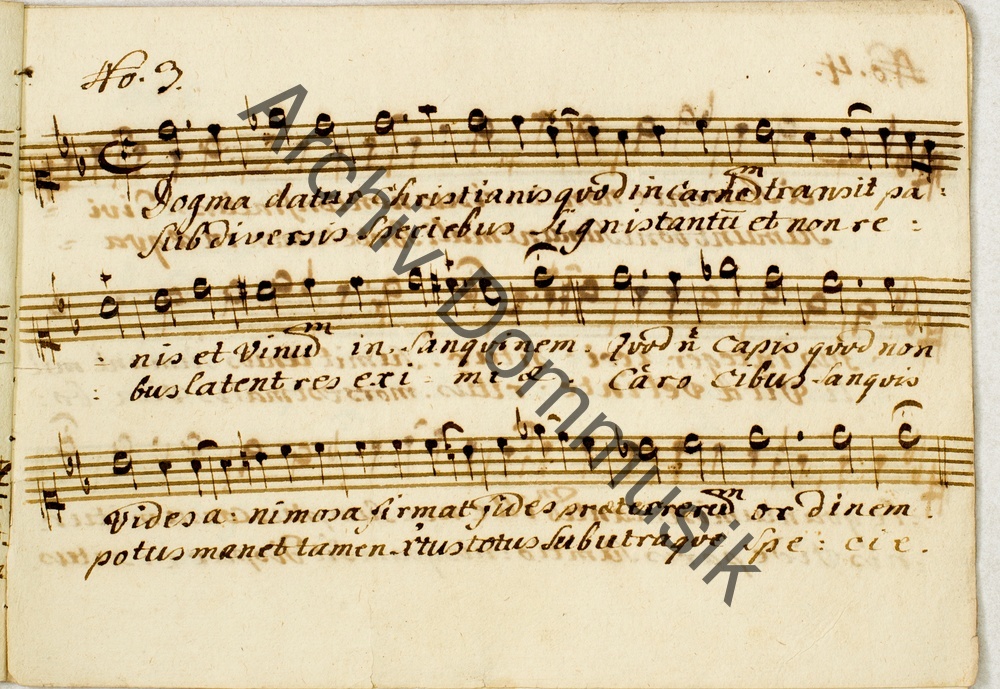 No. 3.
Dogma datur Christianis quod in carnem transit pa :
sub diversis speciebus signis tantū et non re :
: nis et vinum in sanguinem. Quod ñ capis quod non
: bus latent res exi : miæ. Caro cibus sanquis
vides a : nimosa firmat fides præter rerum ordinem.
potus manet tamen Xtus totus sub utraque spe : cie.
Archiv Dommusik